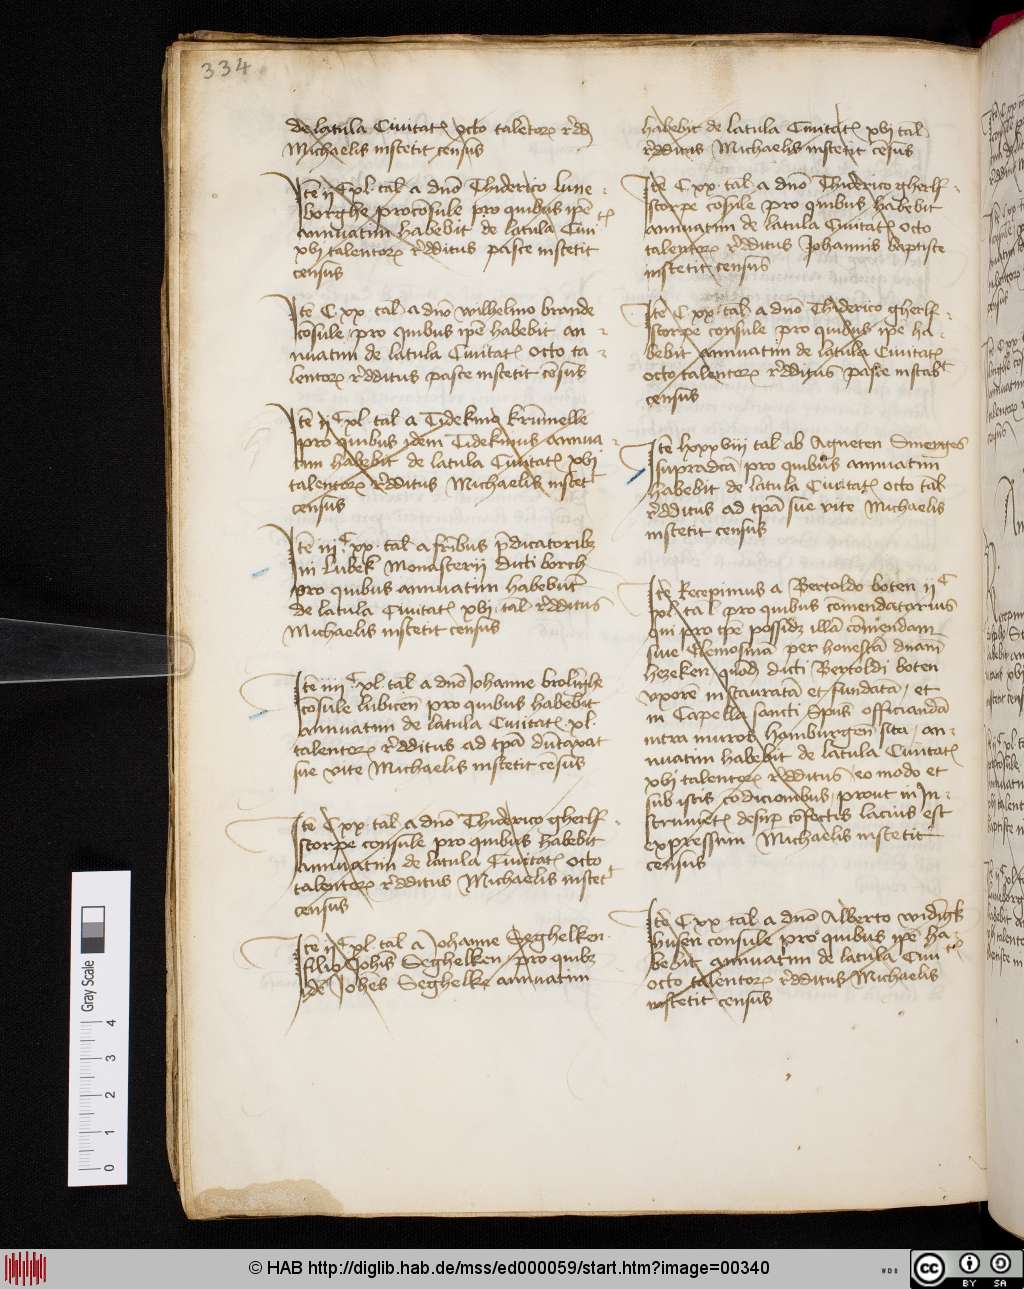 334
de latula Ciuitat octo talentor rdd
Michaelis instetit census
Ite ij C xl tal a dno Thiderico lune
borghe proconsule pro quibus ipe
annuatim habebit de latula Ciuit
xvi talentor rdditus pasce instetit
census
Ite C xx tal a dno wilhelmo brande
cosule pro quibus ipe habebit an
nuatim de latula Ciuitat octo ta
lentor rdditus pasce instetit cesus
Ite ij C xl tal a Tidekino krumelle
pro quibus idem Tidekinus annua
tim habebit de latula Ciuitat xvi
talentor rdditus Michaelis instet
census
Ite iij C xx tal a fribus pdicatoribz
in Lubek Monasterii dicti borch
pro quibus annuatim habebut
de latula Ciuitat xvi tal rdditus
Michaelis instetit census
Ite iiij C xl tal a dno Johanne
cosule lubicen pro quibus habebit
annuatim de latula Ciuitat xl
talentor rdditus ad tpa dutaxat
sue vite Michaelis instetit cesus
Ite C xx tal a dno Thiderico gherlf
storpe consule pro quibus habebit
annuatim de latula Ciuitat octo
talentor rdditus Michaelis instet
census
Ite ij C xl tal a Johanne Seghelken
filio Johis Seghelken pro quibz
de Johes Seghelke annuatim
habebit de latula Ciuitat xvi tal
rdditus Michaelis instetit cesus
Ite C xx tal a dno Thiderico gherlf
storpe cosule pro quibus habebit
annuatim de latula Ciuitat octo
talentor rdditus Johannis baptiste
instetit census
Ite C xx tal a dno Thiderico gherlf
storpe consule pro quibus ipe ha
bebit annuatim de latula Ciuitat
octo talentor rdditus pasce instabt
census
Ite lxxxviii tal ab Agneten Smenges
supradca pro quibus annuatim
habebit de latula Ciuitat octo tal
rdditus ad tpa sue vite Michaelis
instetit census
Ite Recepimus a Bertoldo boten ij C
xl tal pro quibus comendatarius
qui pro tpe possidz illa comendam
siue Elemosina per honesta dnam
hezeken quod dicti Bertoldi boten
vxore instaurata et fundata et
in Capella sancti Spus officianda
intra muros Homburgen sita an
nuatim habebit de latula Ciuitat
xvi talentor rdditus eo modo et
sub istis codicionibus prout in In
strumet desup cofectis lacius est
expressum Michaelis instetit
census
Ite C xx tal a dno Alberto
husen consule pro quibus ipe ha
bebit annuatim de latula Ciuit
octo talentor rdditus Michaelis
instetit census
Gray Scale
0 1 2 3 4
© HAB http://diglib.hab.de/mss/ed000059/start.htm?image=00340
cc BY SA